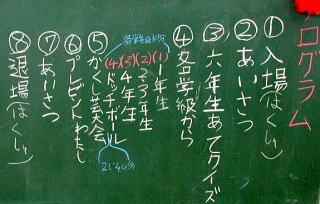 プログラム
① 入場(はくしゅ)
② あいさつ
③ 六年生あてクイズ
④ 各学級から
(1) 1年生
(2) 2.3年生
(3) 4年生
(4) ドッチボール
⑤ かくし芸大会
⑥ プレゼントわたし
⑦ あいさつ
⑧ 退場(はくしゅ)